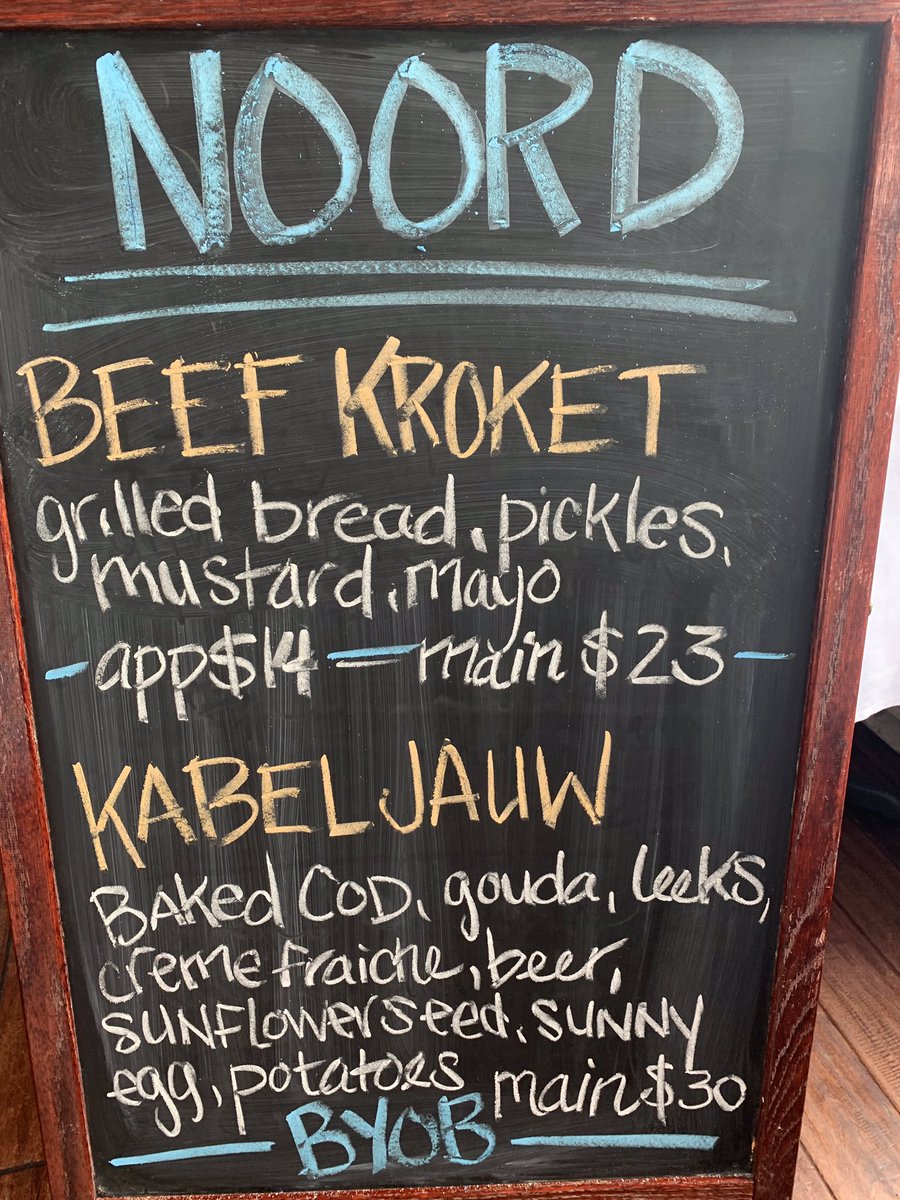 NOORD
BEEF KROKET
grilled bread, pickles,
mustard, mayo
app $14 — main $23
KABELJAUW
BAKed COD, gouda, leeks,
creme fraiche, beer,
SUNFlower seed, SUNNY
egg, potatoes main $30
BYOB